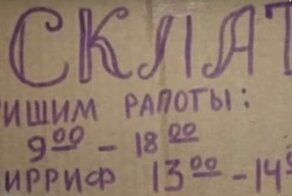 СКЛАТ
ИШИМ РАПОТЫ:
9⁰⁰ – 18⁰⁰
ИРРИФ 13⁰⁰ – 14⁰